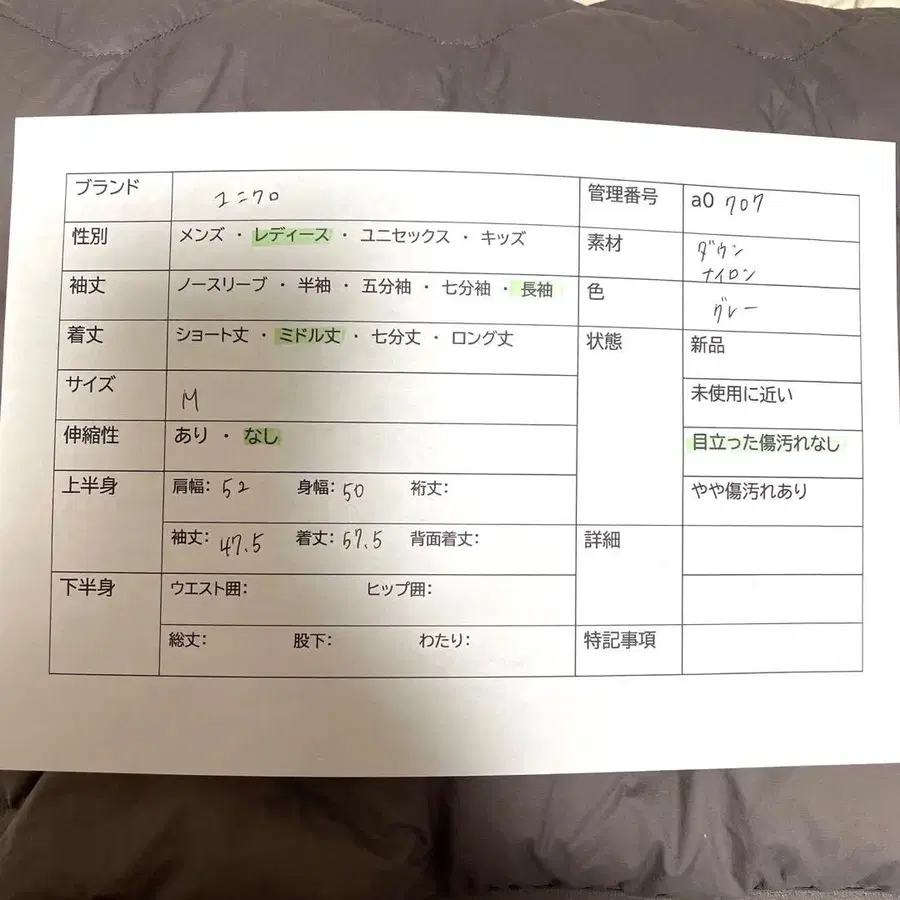 ブランド ユニクロ 管理番号 a0 707
性別 メンズ ・ レディース ・ ユニセックス ・ キッズ 素材 ダウン
ナイロン
袖丈 ノースリーブ ・ 半袖 ・ 五分袖 ・ 七分袖 ・ 長袖 色 グレー
着丈 ショート丈 ・ ミドル丈 ・ 七分丈 ・ ロング丈 状態 新品
サイズ M 未使用に近い
伸縮性 あり ・ なし 目立った傷汚れなし
上半身 肩幅: 52 身幅: 50 裄丈: やや傷汚れあり
袖丈: 47.5 着丈: 57.5 背面着丈: 詳細
下半身 ウエスト囲: ヒップ囲:
総丈: 股下: わたり: 特記事項